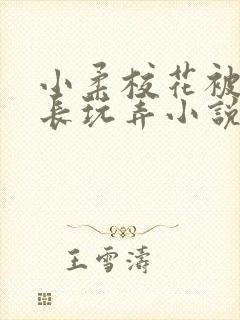 小柔校花被
長玩弄小說
王雪濤